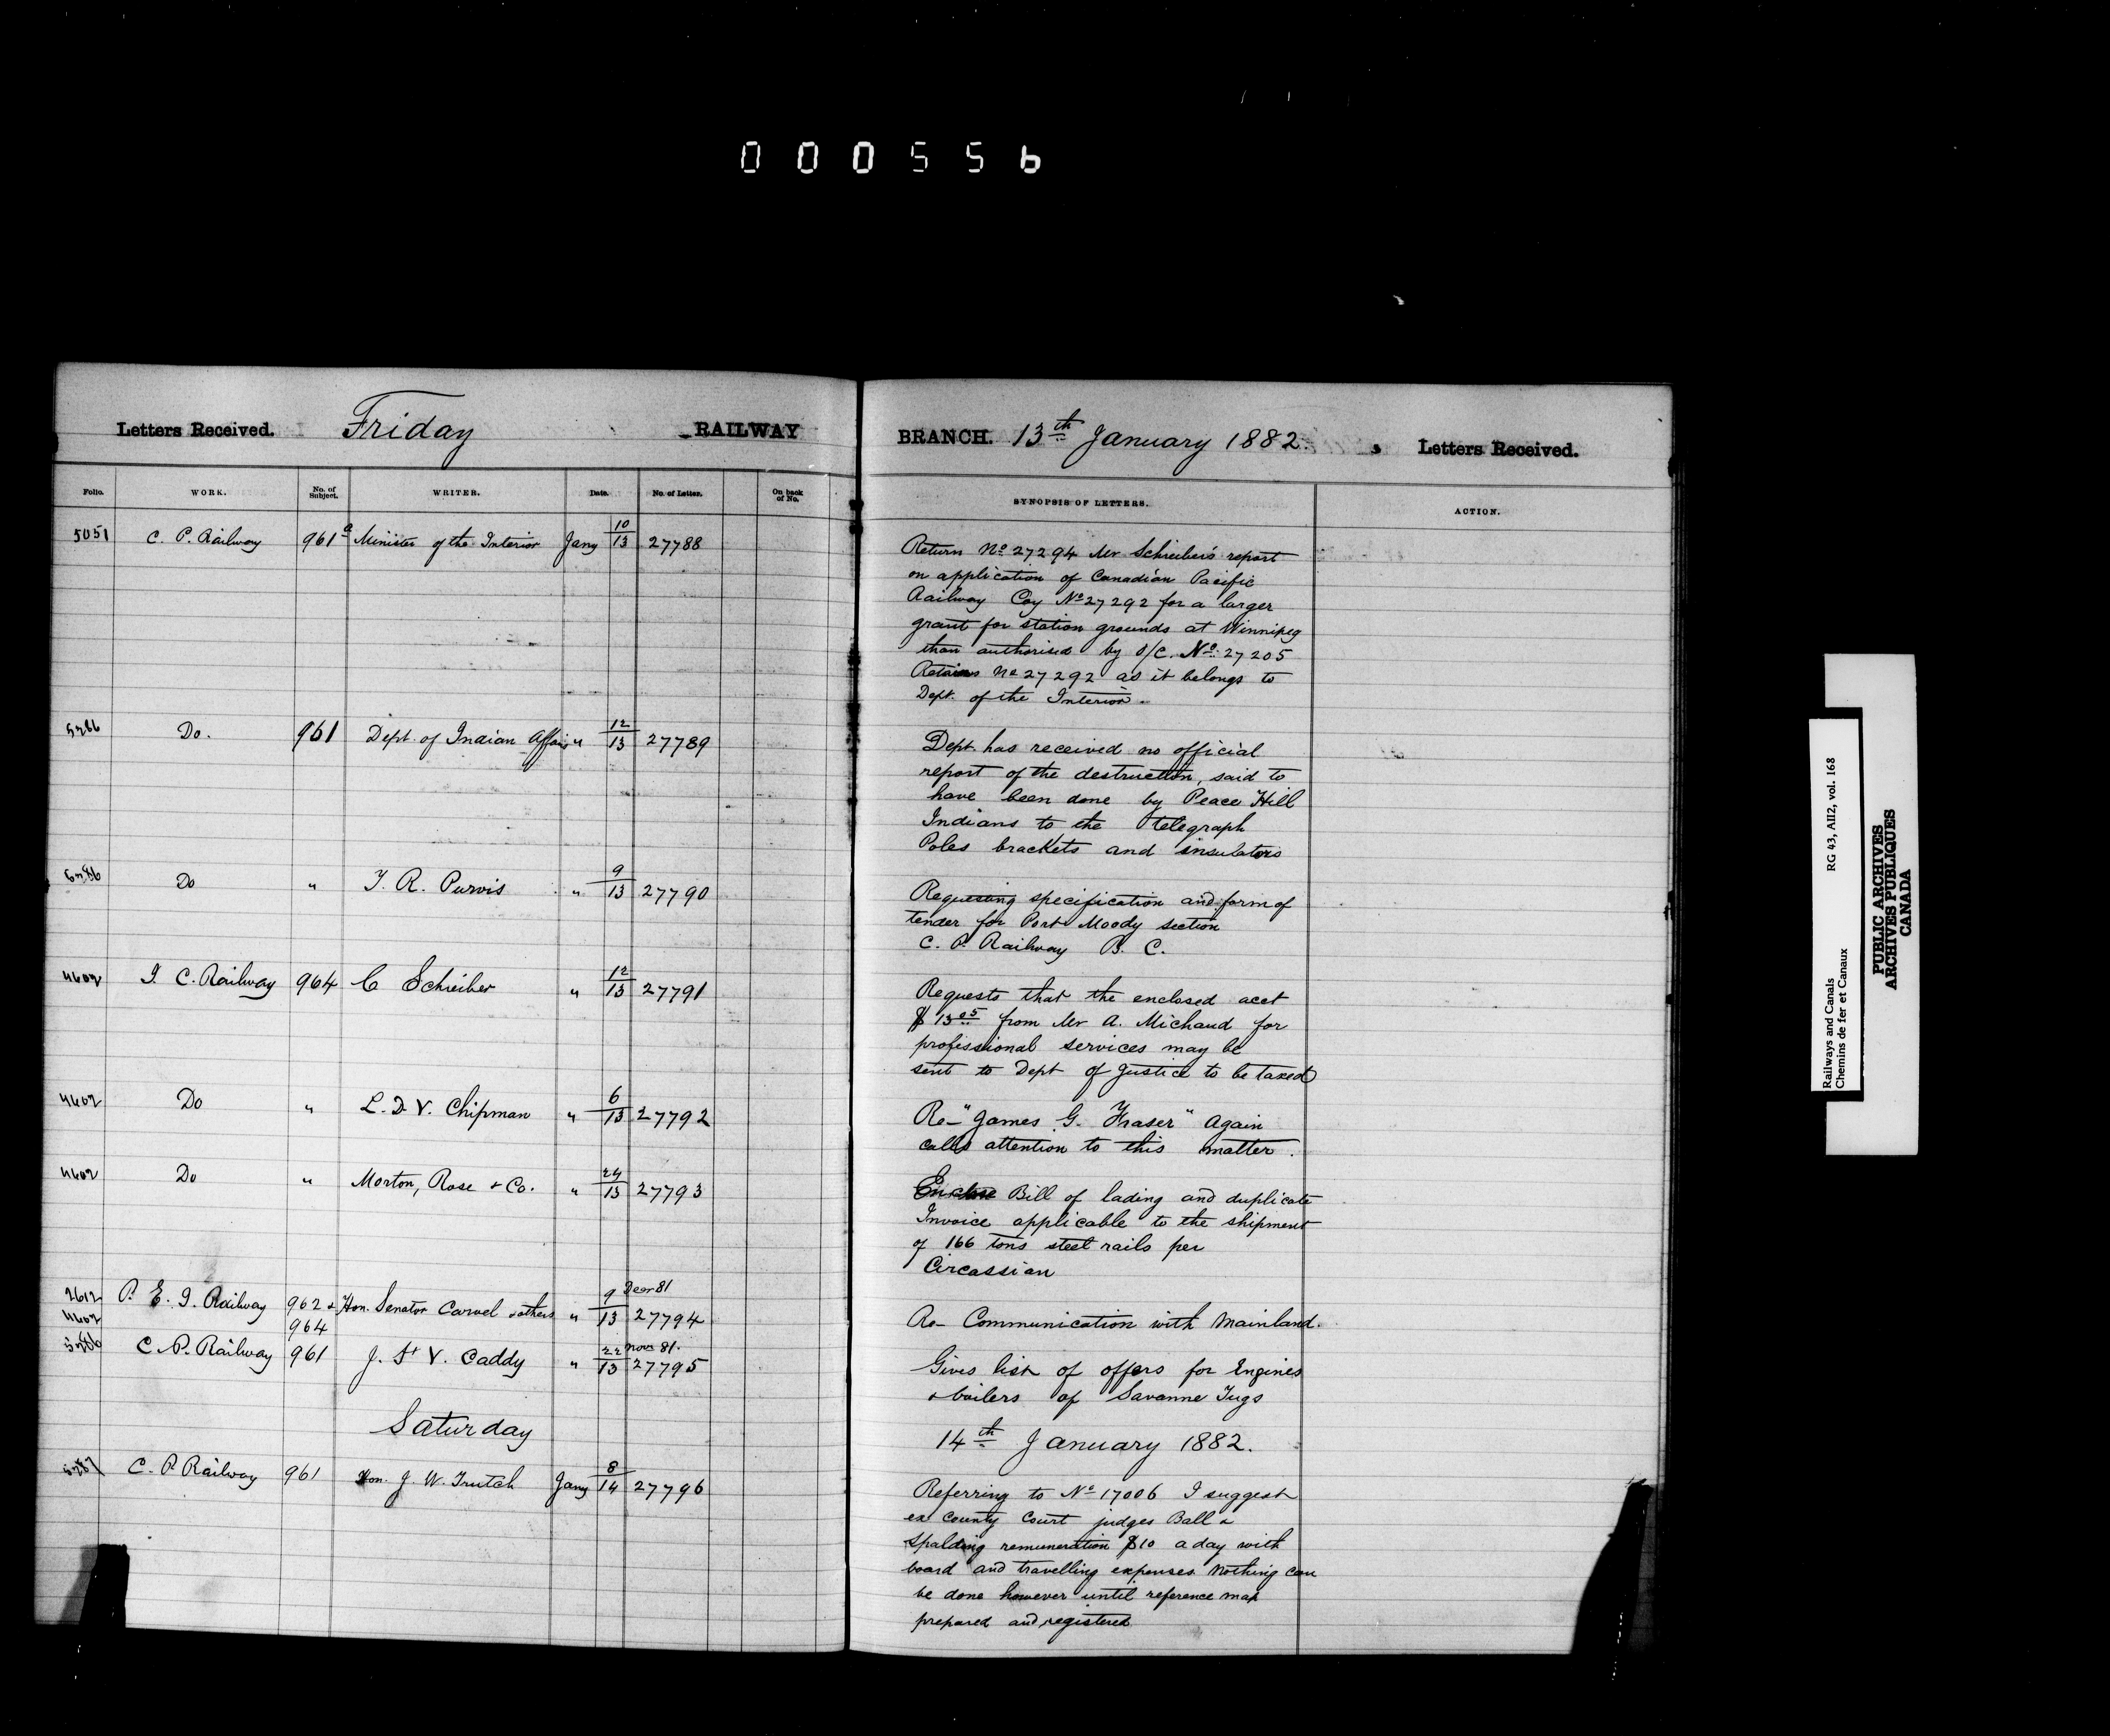 000556
Letters Received. Friday RAILWAY
BRANCH. 13th January 1882. Letters Received.
Folio. WORK. No. of Subject. WRITER. Date. No. of Letter. On back of No.
SYNOPSIS OF LETTERS. ACTION.
5051 C. P. Railway 961a Minister of the Interior Jany 10/13 27788
Return No 27294 Mr Schreiber's report
on application of Canadian Pacific
Railway Coy No 27292 for a larger
grant for station grounds at Winnipeg
than authorised by O/C. No. 27205
Retains No 27292 as it belongs to
Dept. of the Interior.
5286 Do. 961 Dept. of Indian Affairs " 12/13 27789
Dept. has received no official
report of the destruction, said to
have been done by Peace Hill
Indians to the telegraph
Poles brackets and insulators
Do " T. R. Purvis " 9/13 27790
Requesting specification and form of
tender for Port Moody section
C. P. Railway B. C.
4602 I. C. Railway 964 C Schreiber " 12/13 27791
Requests that the enclosed acct
$13.05 from Mr A. Michaud for
professional services may be
sent to Dept of Justice to be taxed
4602 Do " L. D. V. Chipman " 6/13 27792
Re- "James G. Fraser" Again
calls attention to this matter.
4602 Do " Morton, Rose & Co. " 24/13 27793
Enclose Bill of lading and duplicate
Invoice applicable to the shipment
of 166 tons steel rails per
Circassian
2612 P. E. I. Railway 962 & Hon. Senator Carvel & others " 9 Decr 81/13 27794
4602 964
Re- Communication with Mainland.
5286 C. P. Railway 961 J. St V. Caddy " 22 Nov 81./13 27795
Gives list of offers for Engines
& boilers of Savanne Tugs
Saturday
14th January 1882.
5287 C. P. Railway 961 Hon. J. W. Trutch Jany 8/14 27796
Referring to No 17006 I suggest
ex County Court judges Ball &
Spalding remuneration $10 a day with
board and travelling expenses. Nothing can
be done however until reference map
prepared and registered
Railways and Canals RG 43, AII2, vol. 168
Chemins de fer et Canaux
PUBLIC ARCHIVES
ARCHIVES PUBLIQUES
CANADA